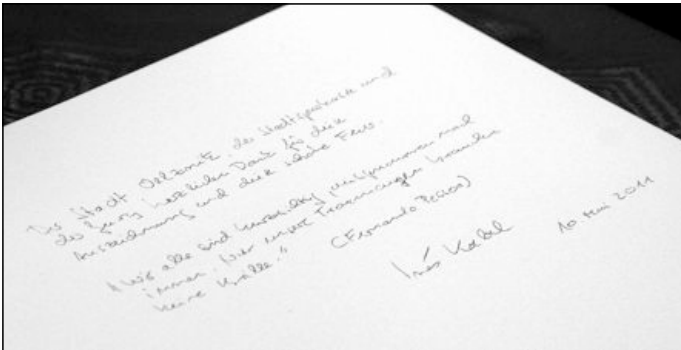 Der Stadt Oelsnitz, der Stadtsparkasse und
der Jury herzlichen Dank für diese
Auszeichnung und diese schöne Feier.
"Wir alle sind kurzsichtig, ausgenommen nach
innen. Nur unsere Träumungen brauchen
keine Brille."
(Fernando Pessoa)
Inés Koebel
10 Mai 2011